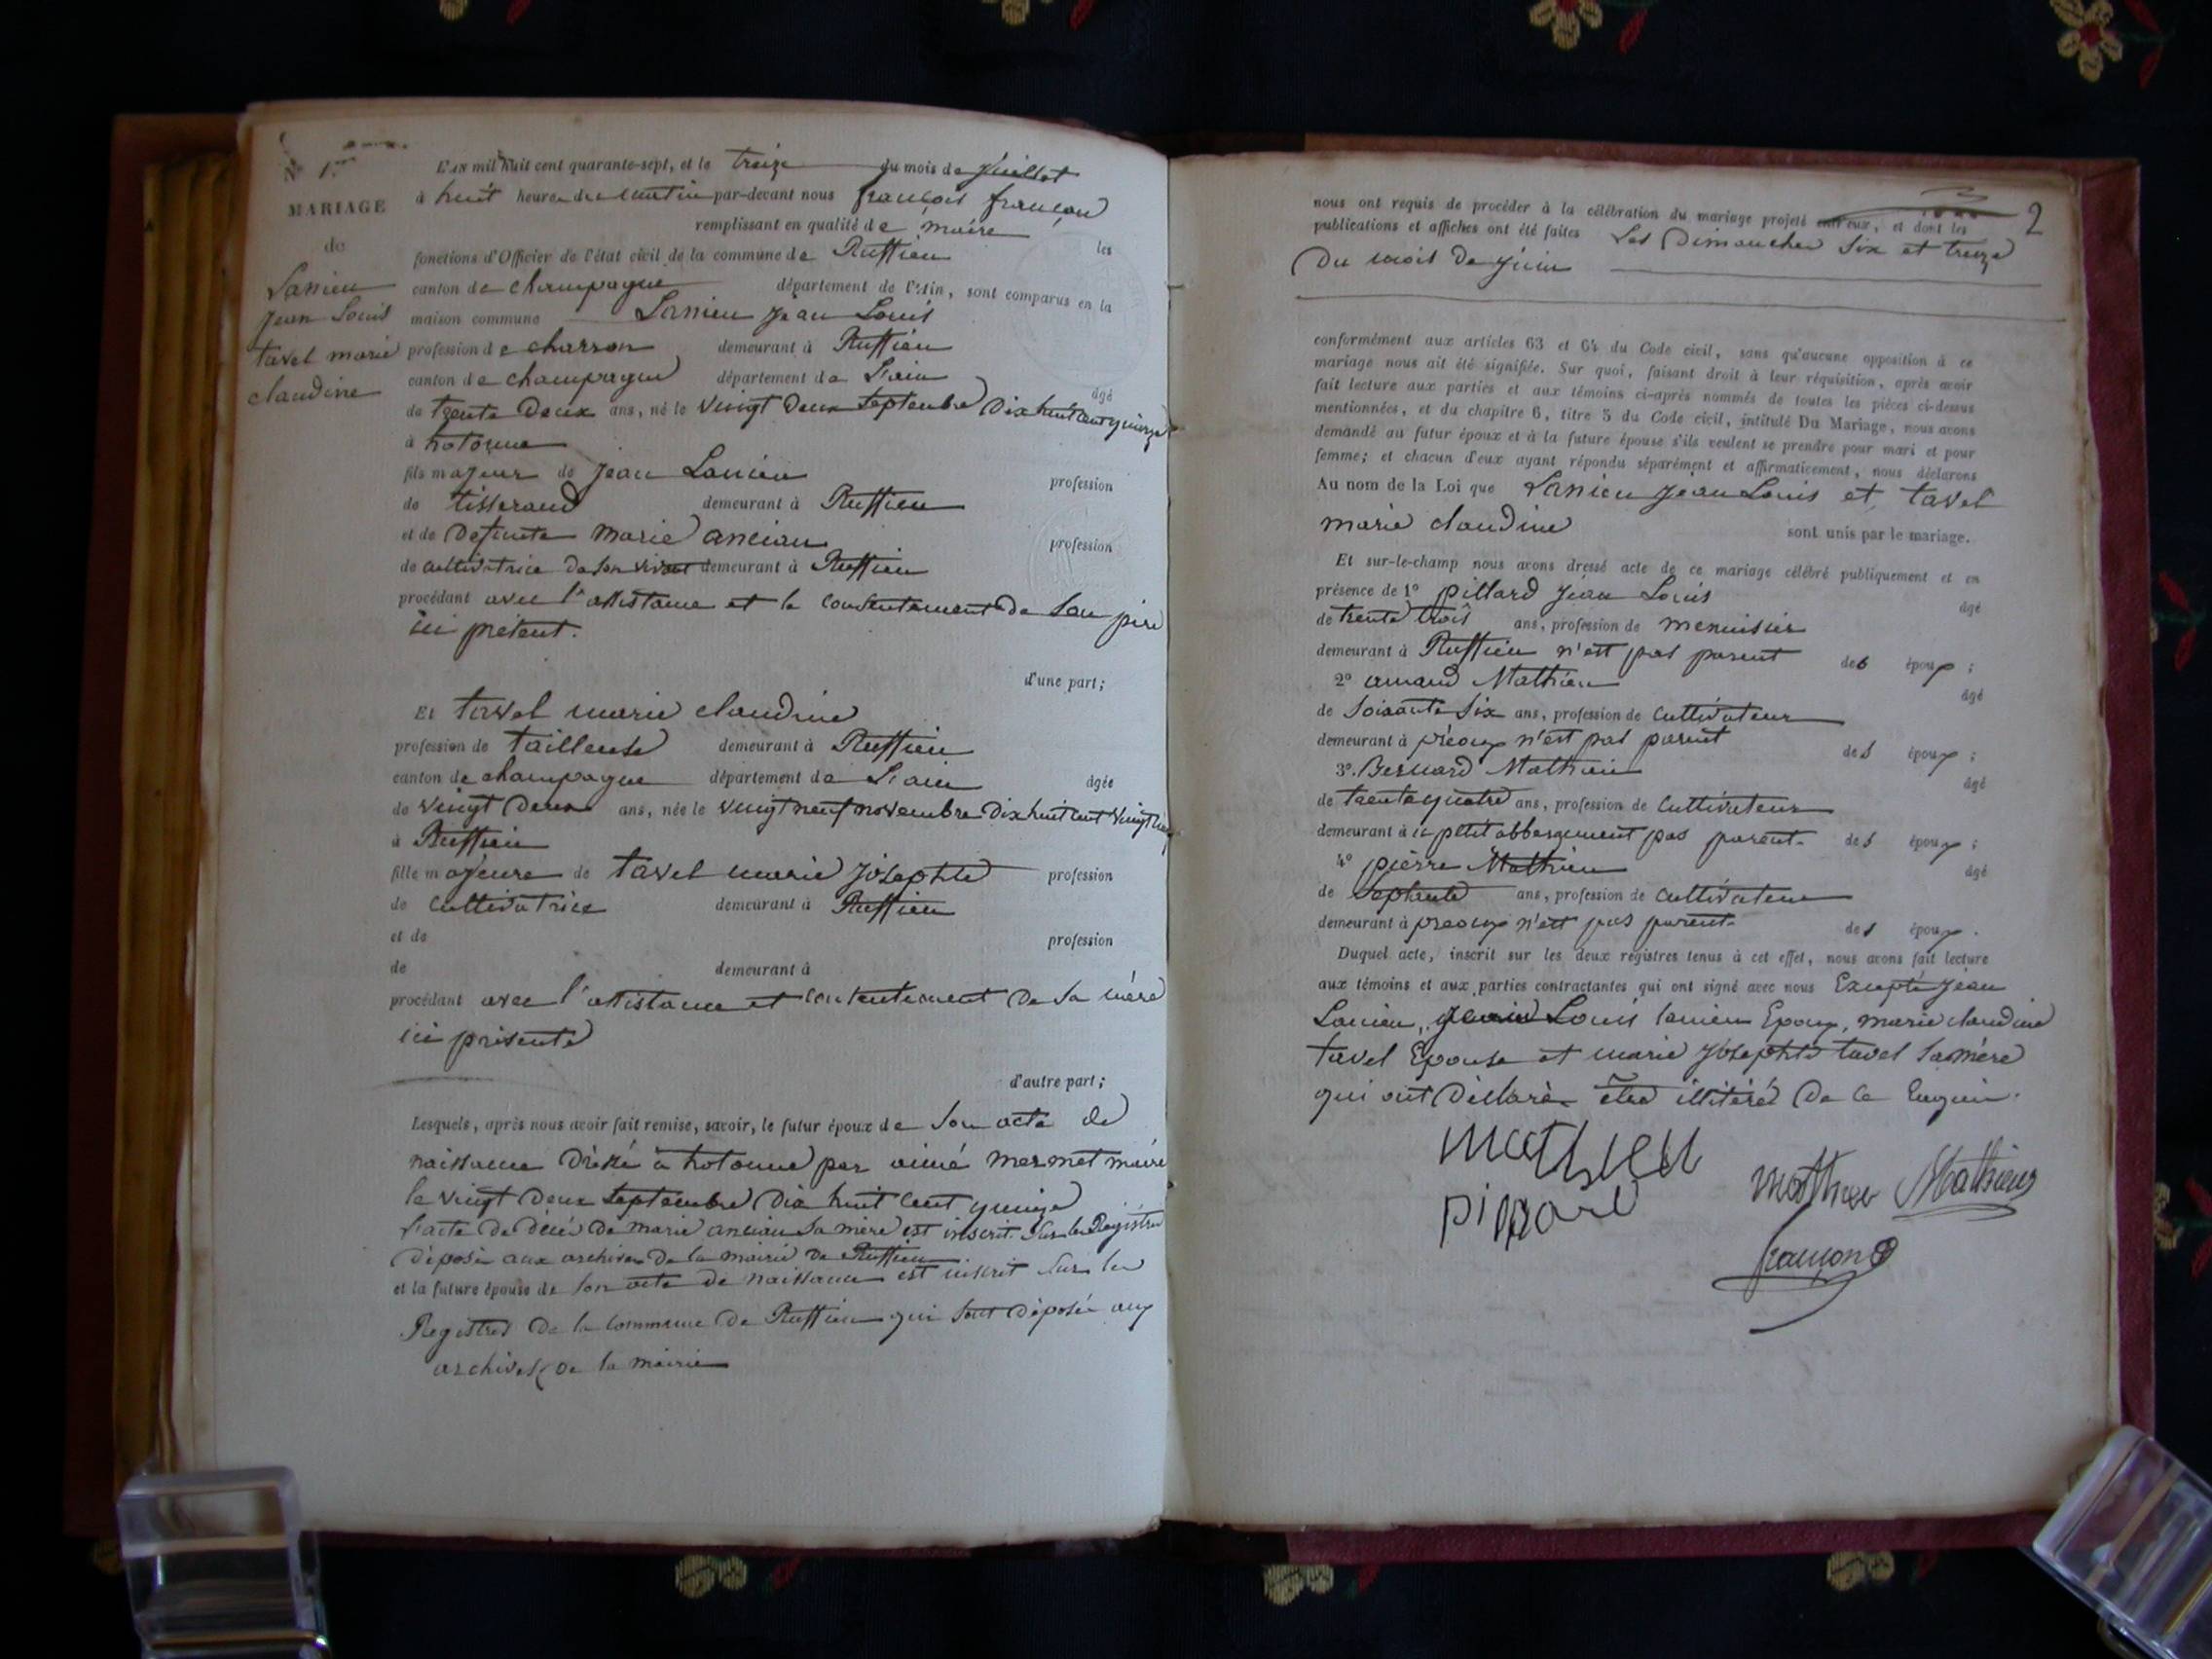 N° 1er
MARIAGE
de
Lanieu
Jean Louis
tavel marie
claudine
L'AN mil huit cent quarante-sept, et le treize du mois de Juillet
à huit heure du matin par-devant nous françois françon
remplissant en qualité de maire les
fonctions d'Officier de l'état civil de la commune de Ruffieu
canton de champagne département de l'Ain, sont comparus en la
maison commune Lanieu Jean Louis
profession de charron demeurant à Ruffieu
canton de champagne département de L'ain âgé
de trente deux ans, né le vingt deux septembre dix huit cent quinze
à hotonne
fils majeur de Jean Lanieu profession
de tisserand demeurant à Ruffieu
et de defunte marie ancian profession
de cultivatrice de son vivant demeurant à Ruffieu
procédant avec l'assistance et le consentement de son père
ici présent.
d'une part;
Et tavel marie claudine
profession de tailleuse demeurant à Ruffieu
canton de champagne département de L'ain âgée
de vingt deux ans, née le vingt neuf novembre dix huit cent vingt
à Ruffieu
fille majeure de tavel marie Josephte profession
de cultivatrice demeurant à Ruffieu
et de profession
de demeurant à
procédant avec l'assistance et consentement de sa mère
ici présente
d'autre part;
Lesquels, après nous avoir fait remise, savoir, le futur époux de son acte de
naissance dressé à hotonne par aimé mermet maire
le vingt deux septembre dix huit cent quinze
l'acte de décés de marie ancian sa mère est inscrit sur les Registres
déposés aux archives de la mairie de Ruffieu
et la future épouse de son acte de naissance est inscrit sur les
Registres de la commune de Ruffieu qui sont déposés aux
archives de la mairie
2
nous ont requis de procéder à la célébration du mariage projeté entr'eux, et dont les
publications et affiches ont été faites Les Dimanches Six et treize
Du mois de Juin
conformément aux articles 63 et 64 du Code civil, sans qu'aucune opposition à ce
mariage nous ait été signifiée. Sur quoi, faisant droit à leur réquisition, après avoir
fait lecture aux parties et aux témoins ci-après nommés de toutes les pièces ci-dessus
mentionnées, et du chapitre 6, titre 5 du Code civil, intitulé Du Mariage, nous avons
demandé au futur époux et à la future épouse s'ils veulent se prendre pour mari et pour
femme; et chacun d'eux ayant répondu séparément et affirmativement, nous déclarons
Au nom de la Loi que Lanieu Jean Louis et tavel
marie claudine sont unis par le mariage.
Et sur-le-champ nous avons dressé acte de ce mariage célébré publiquement et en
présence de 1° pillard Jean Louis âgé
de trente trois ans, profession de menuisier
demeurant à Ruffieu n'est pas parent des époux;
2° amand Mathieu âgé
de soixante six ans, profession de cultivateur
demeurant à n'est pas parent des époux;
3° Bernard Mathieu âgé
de trente quatre ans, profession de cultivateur
demeurant à petit abbergement pas parent des époux;
4° pierre Mathieu âgé
de septante ans, profession de cultivateur
demeurant à n'est pas parent des époux.
Duquel acte, inscrit sur les deux registres tenus à cet effet, nous avons fait lecture
aux témoins et aux parties contractantes qui ont signé avec nous Excepté Jean
Lanieu, Jean Louis lanieu Epoux, marie claudine
tavel Epouse et marie Josephte tavel sa mère
qui ont déclaré être illitéré de ce
mathieu
mathieu Mathieu
pillard
françon